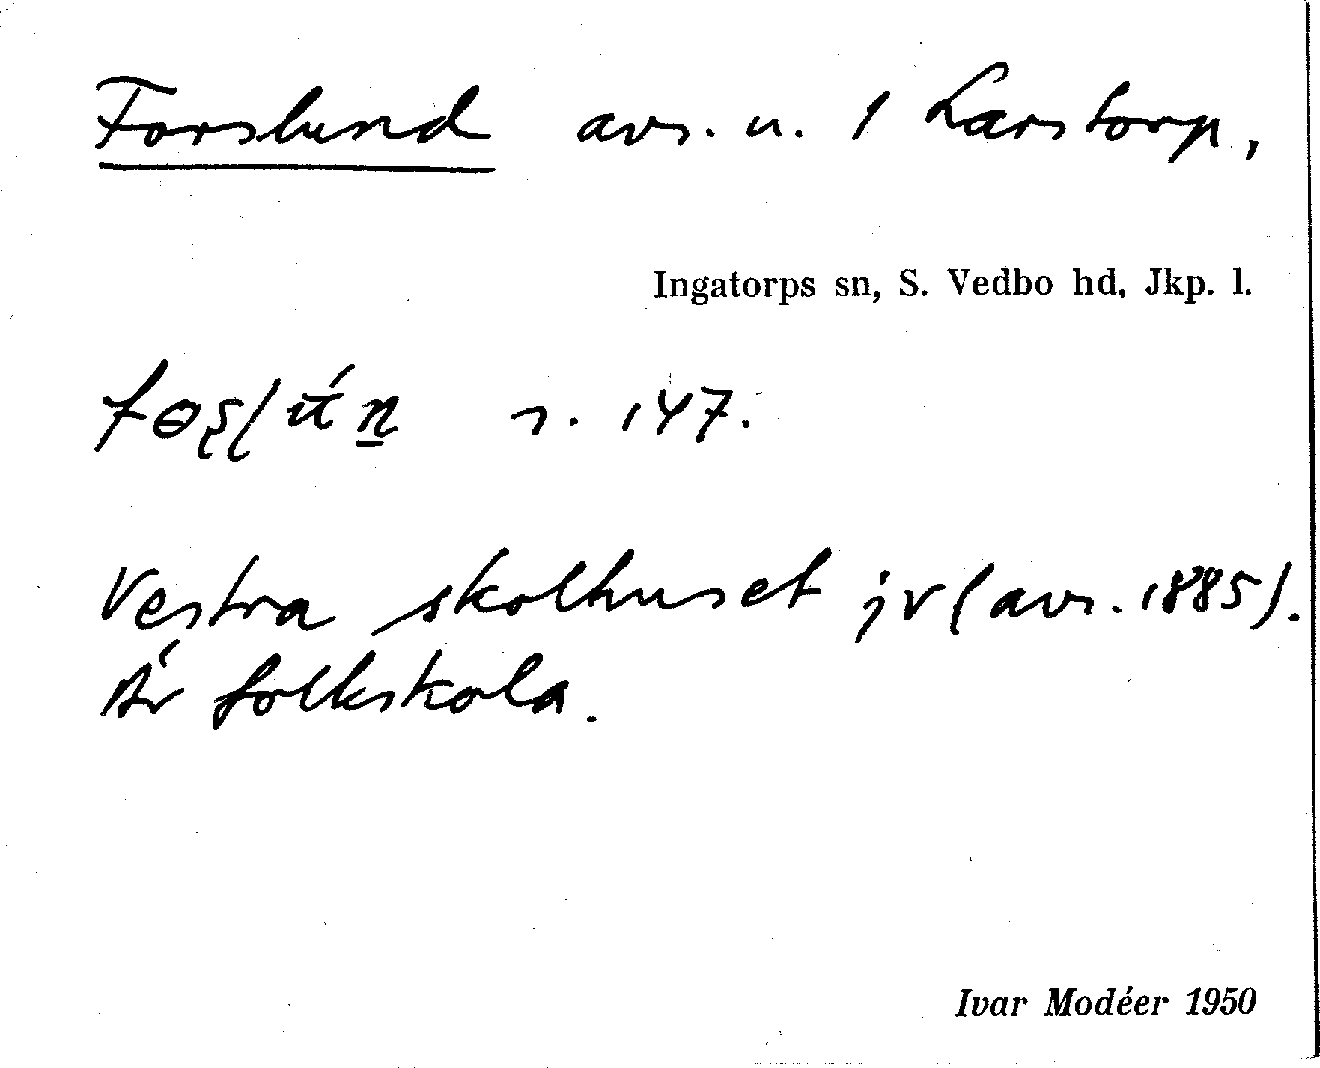 Forslund avs. u. 1 Larstorp,
Ingatorps sn, S. Vedbo hd, Jkp. l.
s. 147.
Vestra skolhuset jv (avs. 1885).
Är folkskola.
Ivar Modéer 1950